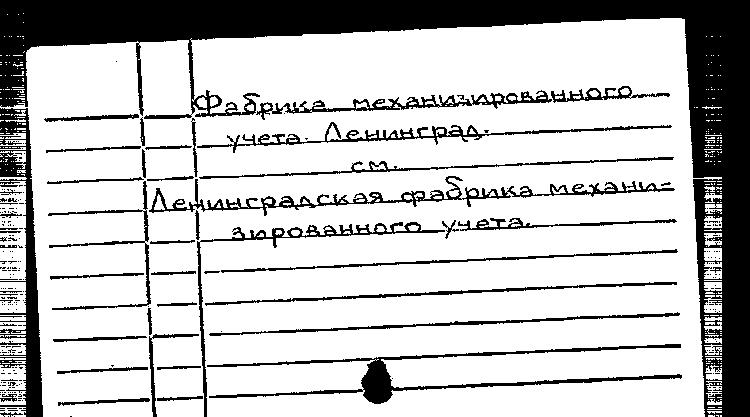 Фабрика механизированного
учета. Ленинград.
см.
Ленинградская фабрика механи-
зированного учета.